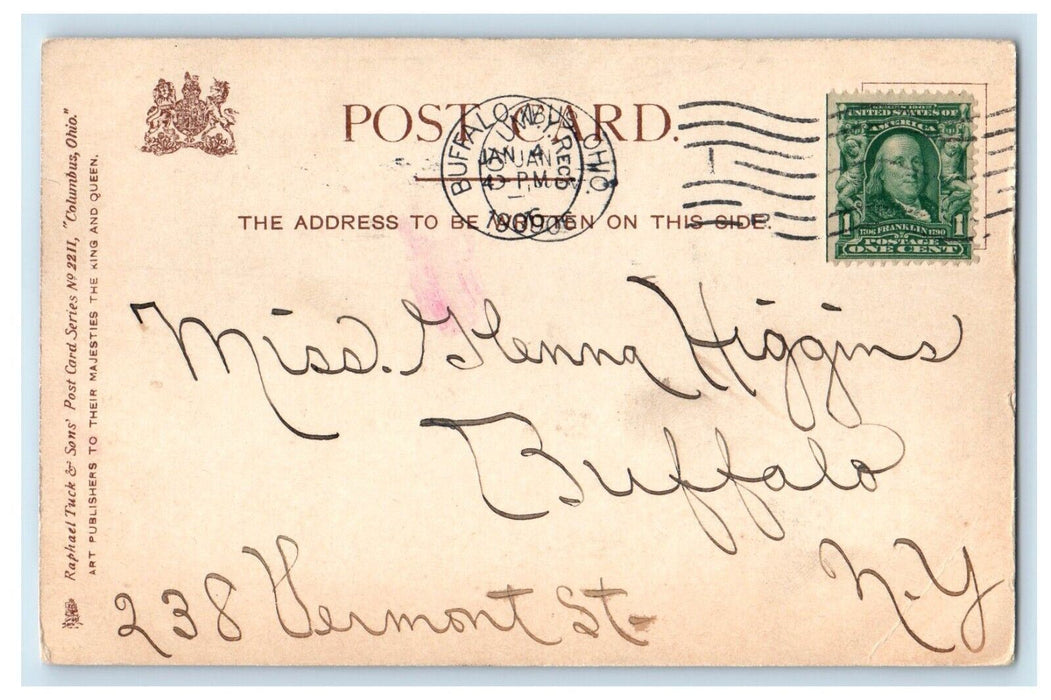 POST CARD.
THE ADDRESS TO BE WRITTEN ON THIS SIDE.
Raphael Tuck & Sons' Post Card Series Nº 2211, "Columbus, Ohio."
ART PUBLISHERS TO THEIR MAJESTIES THE KING AND QUEEN.
BUFFALO, N.Y. REC'D
COLUMBUS, OHIO.
JAN 4
JAN
P.M.
1906
1
SERIES 1902
UNITED STATES OF
AMERICA
1 1
1706 FRANKLIN 1790
POSTAGE
ONE CENT
Miss. Glenna Higgins
Buffalo
N.Y
238 Vermont St.